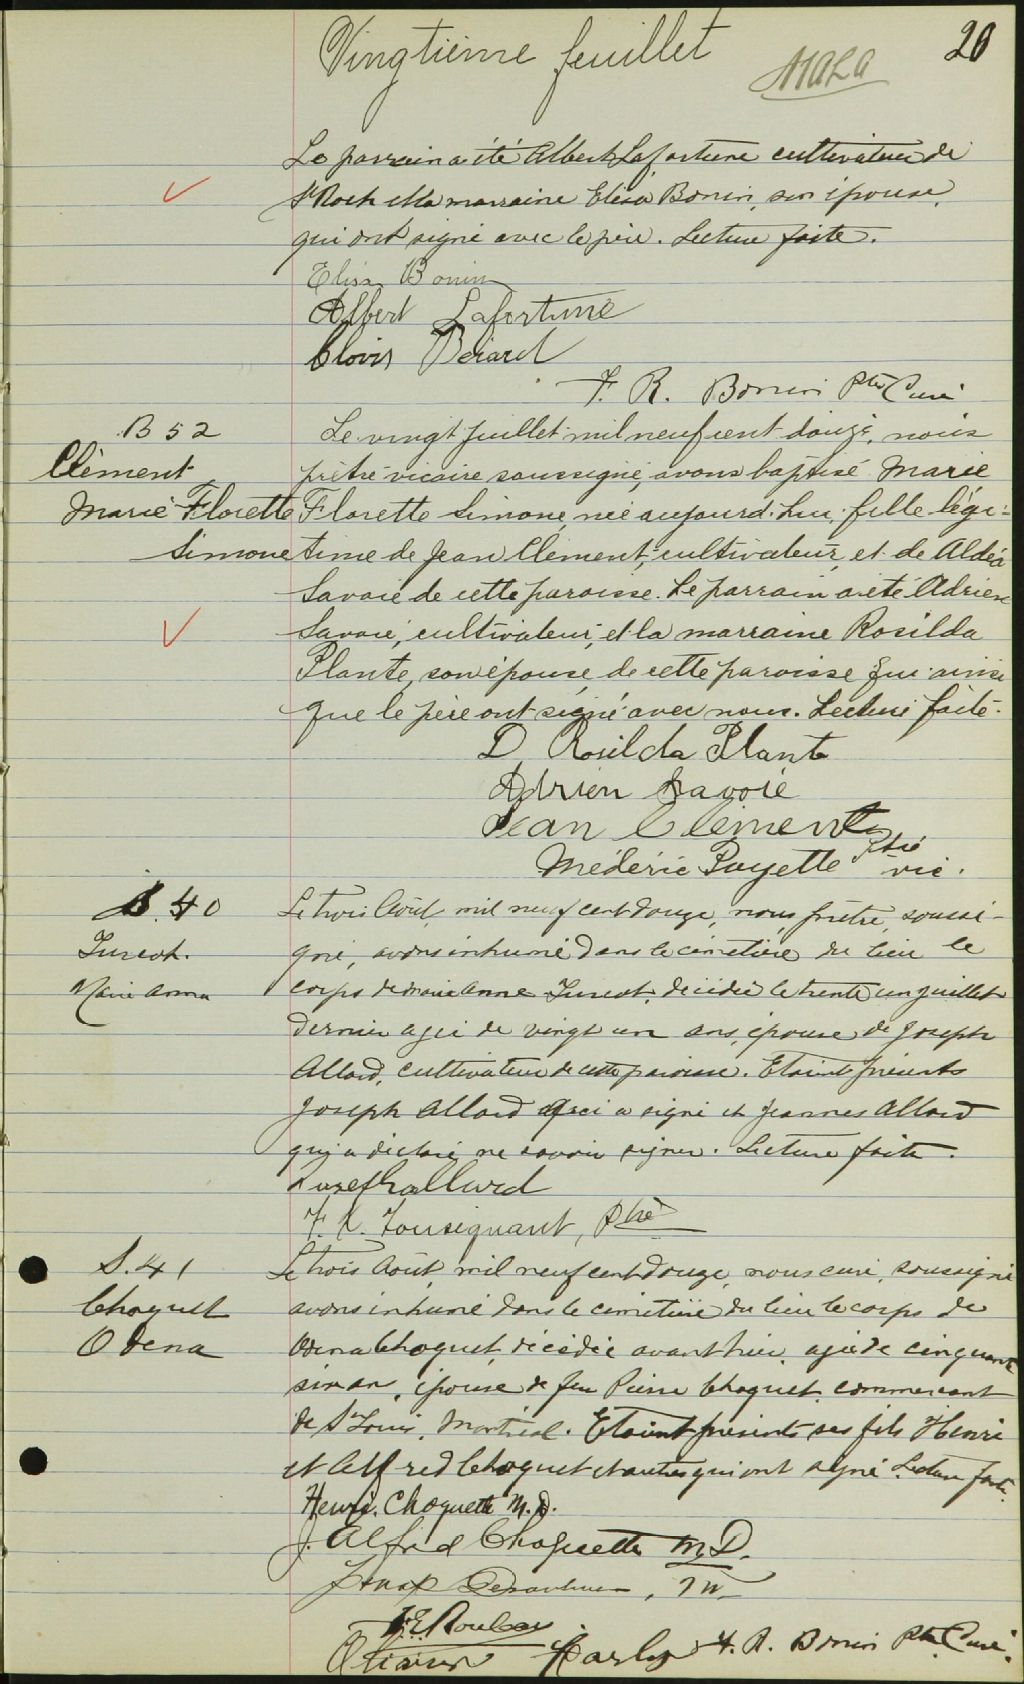 Vingtième feuillet
20
Le parrain a été Albert Lafortune cultivateur de
St Roch et la marraine Elisa Bonin, son épouse,
qui ont signé avec le père. Lecture faite.
Elisa Bonin
Albert Lafortune
Clovis Beiard
F. R. Bonin Ptre Curé
B 52
Clément
Marie Florette
Simone
Le vingt juillet mil neuf cent douze, nous
prêtre vicaire soussigné, avons baptisé Marie
Florette Simone, née aujourd'hui, fille légi-
time de Jean Clément, cultivateur, et de Aldéa
Savoie de cette paroisse. Le parrain a été Adrien
Savoie, cultivateur, et la marraine Rosilda
Plante, son épouse, de cette paroisse qui ainsi
que le père ont signé avec nous. Lecture faite.
D Rosilda Plante
Adrien Savoie
Jean Clément
Médéric Payette Ptre vic.
S. 40
Turcot.
Marie Anna
Le trois Août, mil neuf cent douze, nous, prêtre, soussi-
gné, avons inhumé dans le cimetière du lieu le
corps de Marie Anne Turcot, décédée le trente un juillet
dernier agée de vingt un ans, épouse de Joseph
Allard, cultivateur de cette paroisse. Etaient présents
Joseph Allard qui a signé et Allard
qui a déclaré ne savoir signer. Lecture faite.
Joseph allard
F. X. Tousignant, Ptre
S. 41
Choquet
Odena
Le trois Août, mil neuf cent douze, nous curé, soussigné
avons inhumé dans le cimetière du lieu le corps de
Odena Choquet, décédée avant hier, agée de cinquante
six an, épouse de feu Pierre Choquet, commercant
de St Louis, Montréal. Etaient présents ses fils Henri
et Alfred Choquet et autres qui ont signé. Lecture faite.
Henri. Choquette M.D.
J. Alfred Choquette M.D.
J. E. Rouleau
F. R. Bonin Ptre Curé.